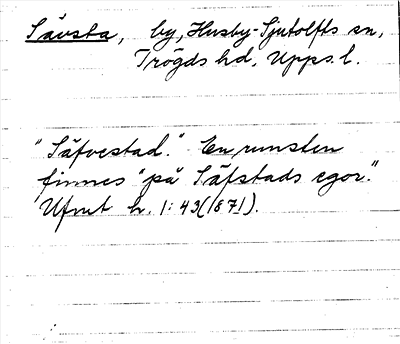 Sävsta, by, Husby-Sjutolfts sn,
Trögds hd, Upps. l.
"Säfvestad." En runsten
finnes "på Säfstads egor."
Ufmt h. 1: 43 (1871).